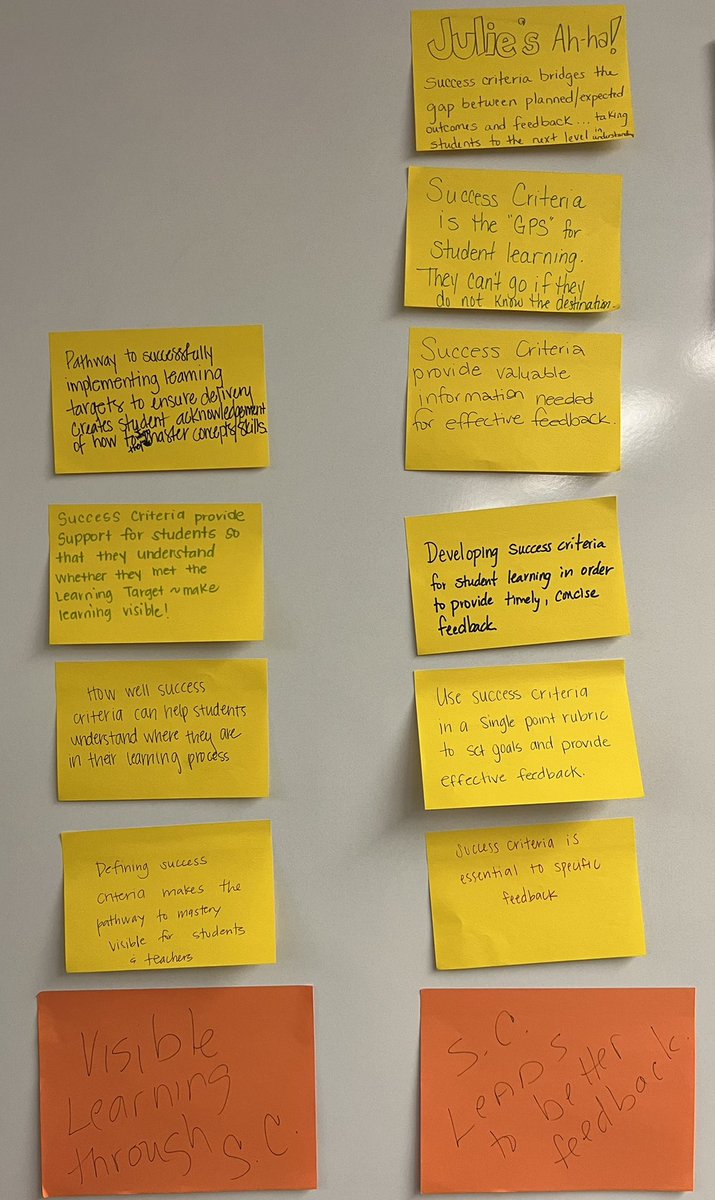 Pathway to successfully
implementing learning
targets to ensure delivery
creates student acknowledgement
of how to master concepts/skills.
Success Criteria provide
support for students so
that they understand
whether they met the
Learning Target ~ make
learning visible!
How well success
criteria can help students
understand where they are
in their learning process
Defining success
criteria makes the
pathway to mastery
visible for students
& teachers
Visible
Learning
through
S.C.
Julie's Ah-ha!
Success criteria bridges the
gap between planned/expected
outcomes and feedback... taking
students to the next level in understanding
Success Criteria
is the "GPS" for
Student learning.
They can't go if they
do not know the destination.
Success Criteria
provide valuable
information needed
for effective feedback.
Developing success criteria
for student learning in order
to provide timely, concise
feedback
Use success criteria
in a single point rubric
to set goals and provide
effective feedback.
Success criteria is
essential to specific
feedback
S.C.
LEADS
to better
feedback.